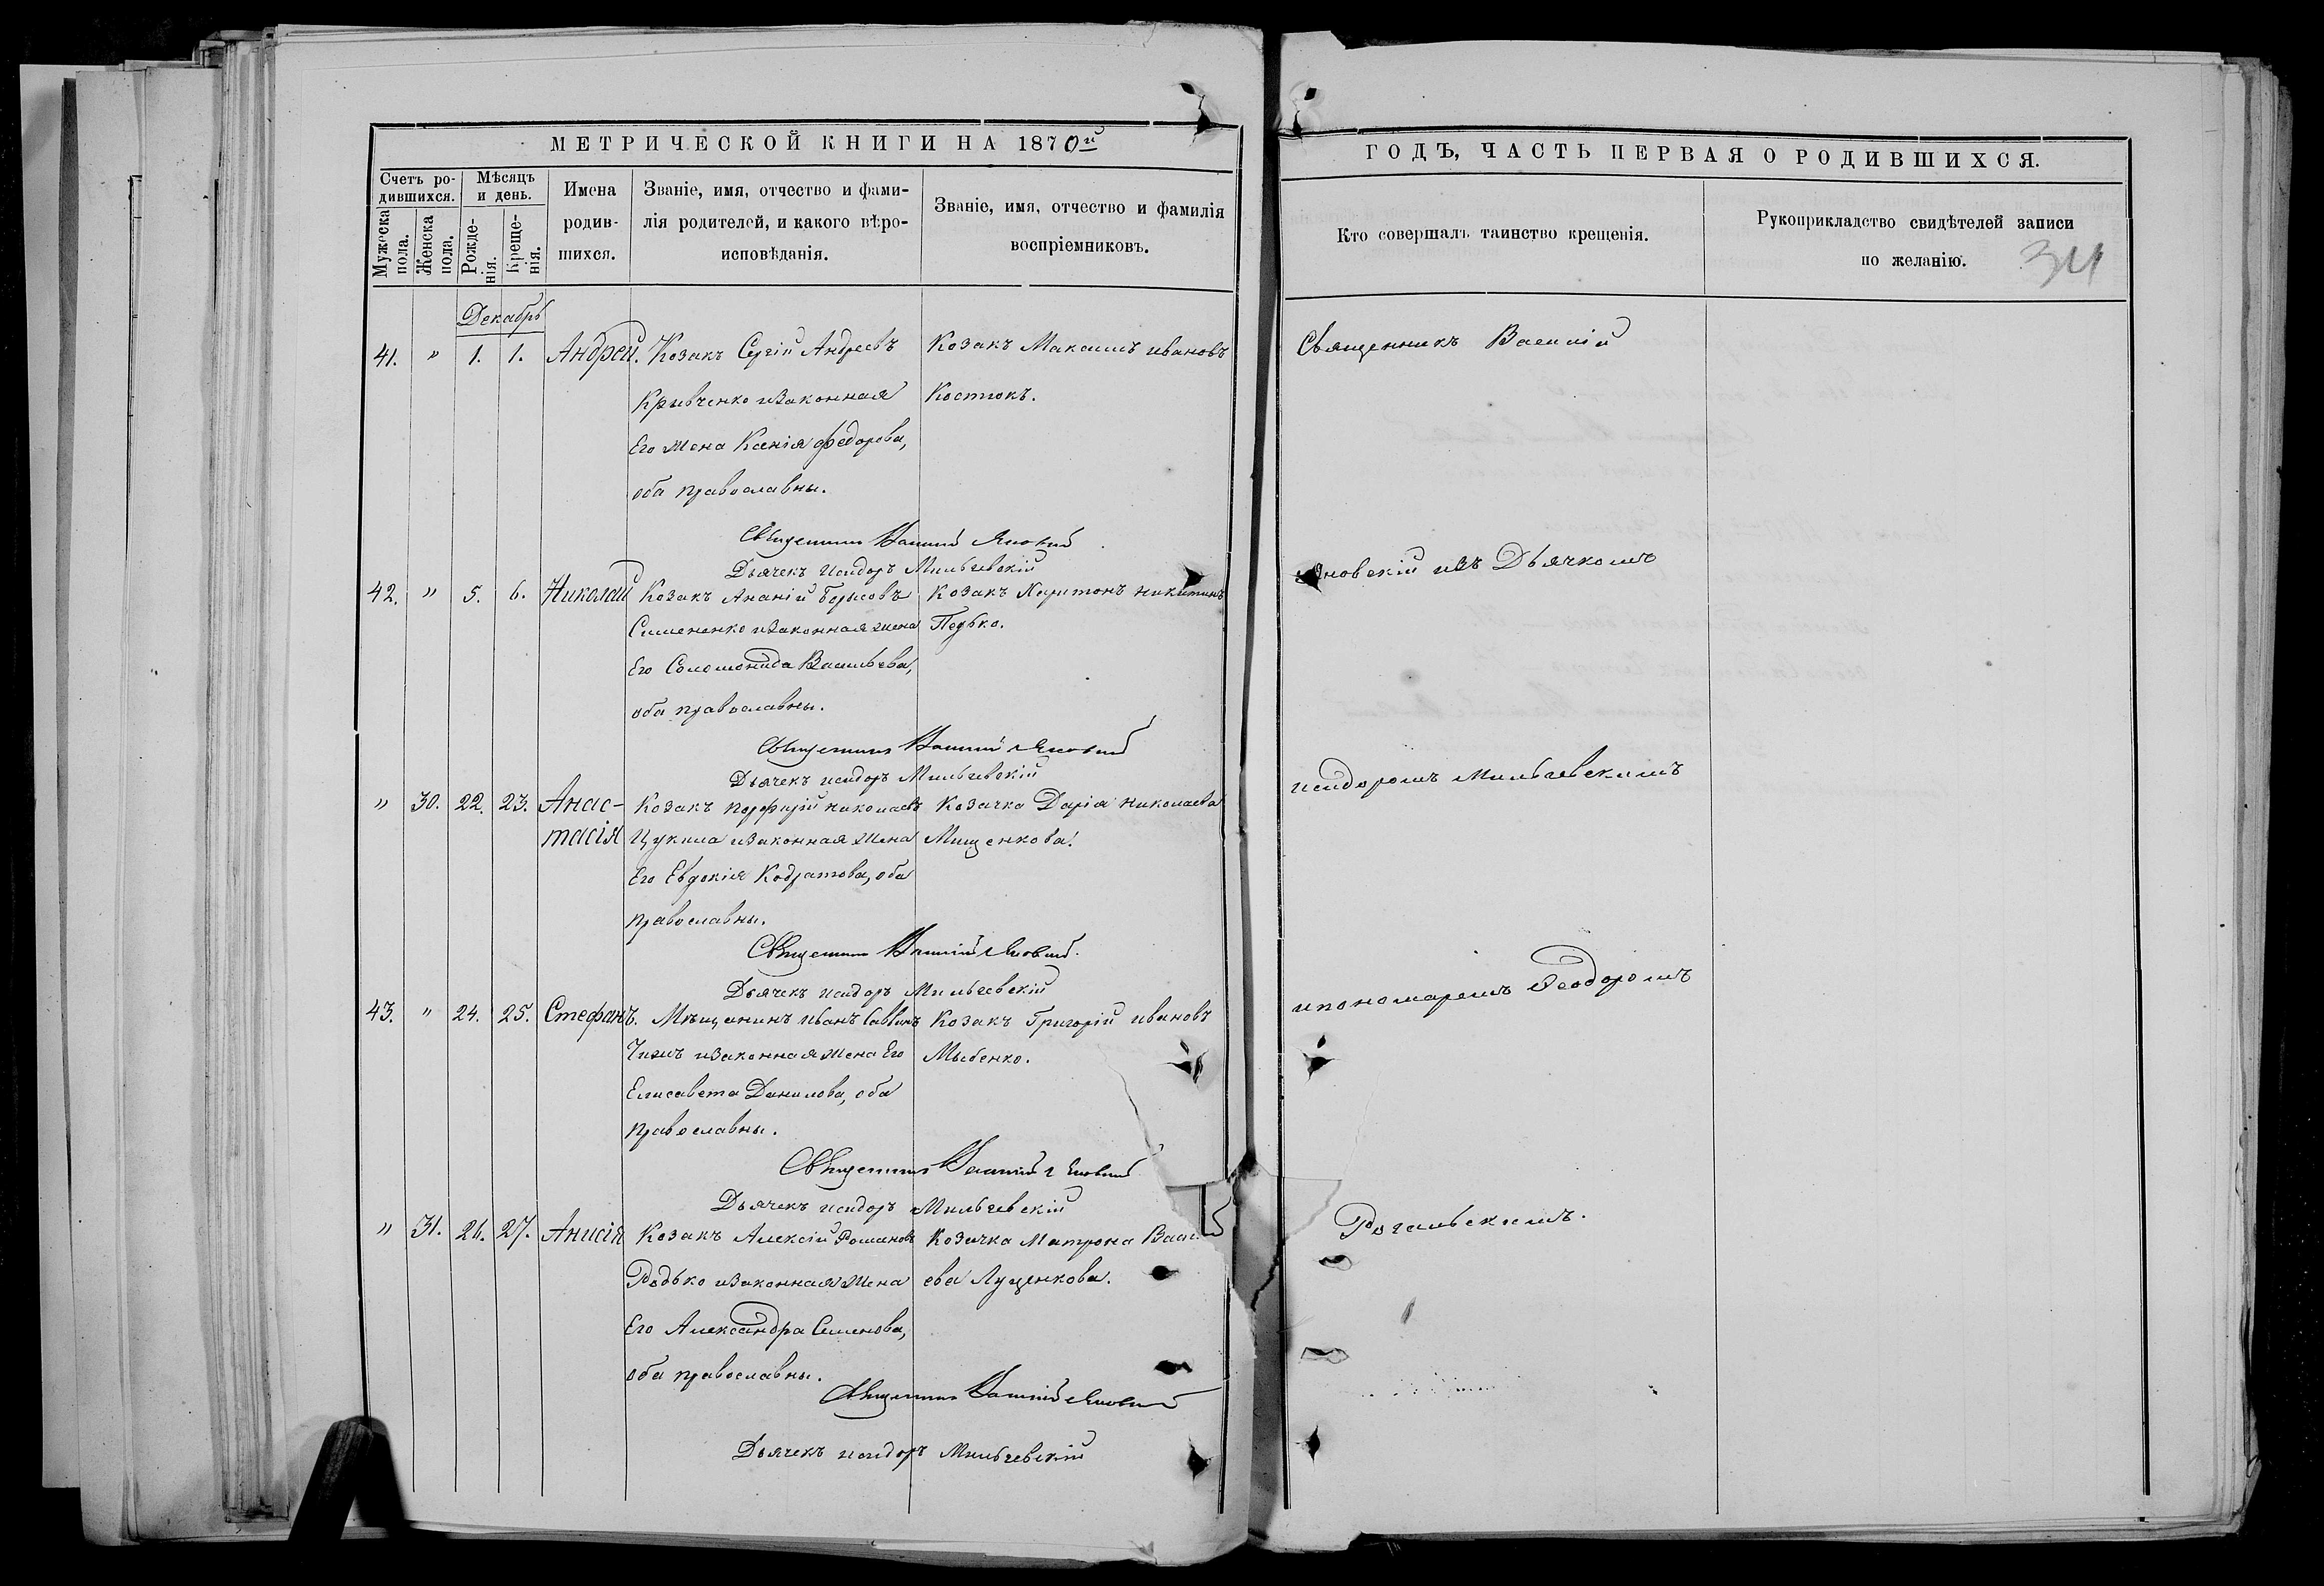 МЕТРИЧЕСКОЙ КНИГИ НА 1870й
Счетъ ро-
дившихся.
Мѣсяцъ
и день.
Мужеска
пола.
Женска
пола.
Рожде-
нія.
Креще-
нія.
Имена
родив-
шихся.
Званіе, имя, отчество и фами-
лія родителей, и какого вѣро-
исповѣданія.
Званіе, имя, отчество и фамилія
воспріемниковъ.
Декабрь
41. " 1. 1. Андрей. Козакъ Сергій Андреевъ Козакъ Максимъ Ивановъ
Кривченко и законная Костюкъ.
Его жена Ксенія Федорова,
оба православны.
Священникъ Василій Яновскій
Дьячекъ Исидоръ Мильчевскій
42. " 5. 6. Николай Козакъ Ананій Борисовъ Козакъ Харитонъ Никитинъ
Симененко и законная жена Педько.
Его Соломонида Васильева,
оба православны.
Священникъ Василій Яновскій
Дьячекъ Исидоръ Мильчевскій
" 30. 22. 23. Анас- Козакъ Порфирій Николаевъ Козачка Дарія Николаева
тасія Цукила и законная жена Мищенкова.
Его Евдокія Кодратова, оба
православны.
Священникъ Василій Яновскій.
Дьячекъ Исидоръ Мильчевскій
43. " 24. 25. Стефанъ. Мѣщанинъ Иванъ Саввинъ Козакъ Григорій Ивановъ
и законная жена Его
Елисавета Данилова, оба
православны.
Священникъ Василій Яновскій
Дьячекъ Исидоръ Мильчевскій
" 31. 26. 27. Анисія Козакъ Алексій Романовъ Козачка Матрона Васил
Родько и законная жена ева Луценкова.
Его Александра Семенова,
оба православны.
Священникъ Василій Яновскій
Дьячекъ Исидоръ Мильчевскій
ГОДЪ, ЧАСТЬ ПЕРВАЯ О РОДИВШИХСЯ.
Кто совершалъ таинство крещенія.
Рукоприкладство свидѣтелей записи
по желанію.
34
Священникъ Василій
Яновскій изъ Дьячкомъ
Исидоромъ Мильчевскимъ
и пономаремъ Феодоромъ
Рогальскимъ.